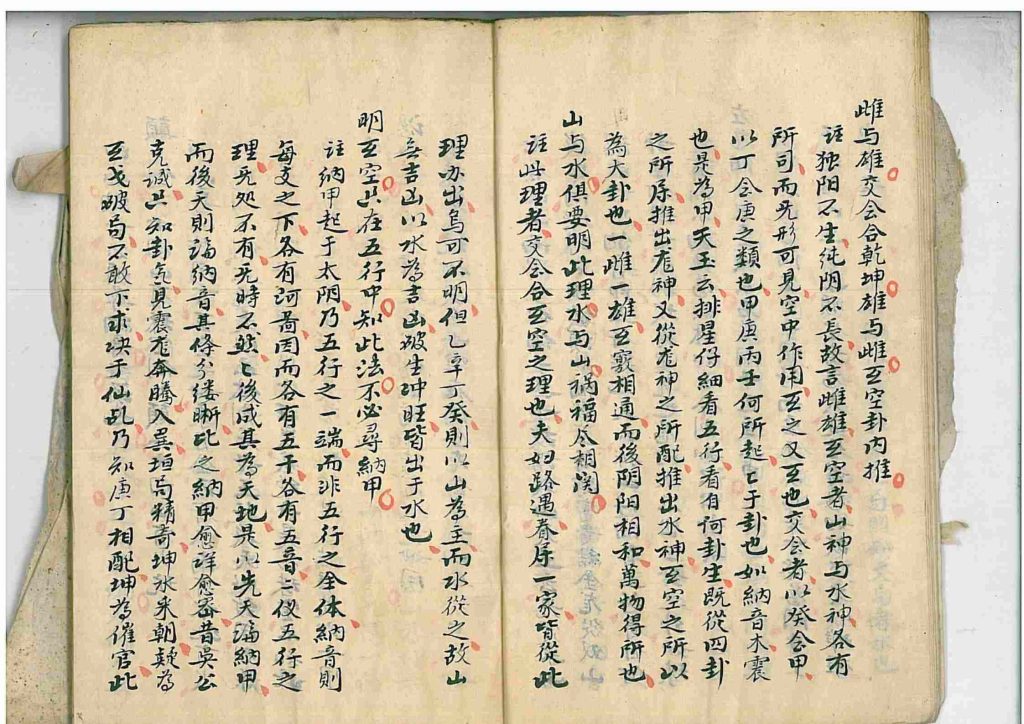 雌与雄交会合乾坤雄与雌玄空卦内推
註独阳不生純阴不長故言雌雄玄空者山神与水神各有
所司而旡形可見空中作用玄之又玄也交会者以癸会甲
以丁会庚之類也甲庚丙壬何所起〻于卦也如納音木震
也是為甲天玉云排星仔细看五行看自何卦生既從四卦
之所序推出龙神又從龙神之所配推出水神玄空之所以
為大卦也一雌一雄玄竅相通而後阴阳相和萬物得所也
山与水俱要明此理水与山祸福尽相関
註此理者交会合玄空之理也夫妇路遇眷序一家皆從此
理办出烏可不明但乙辛丁癸則以山為主而水從之故山
無吉凶以水為吉凶破生冲旺皆出于水也
明玄空只在五行中知此法不必尋納甲
註納甲起于太阴乃五行之一端而非五行之全体納音則
每支之下各有河圖因而各有五干各有五音二仪五行之
理旡処不有旡時不然〻後成其為天地是以先天论納甲
而後天則论納音其條分缕晰比之納甲愈详愈密昔吳公
克诚只知卦氣見震龙奔騰入巽垣局精奇坤水来朝疑為
玄戈破局不敢下求决于仙乩乃知庚丁相配坤為催官此